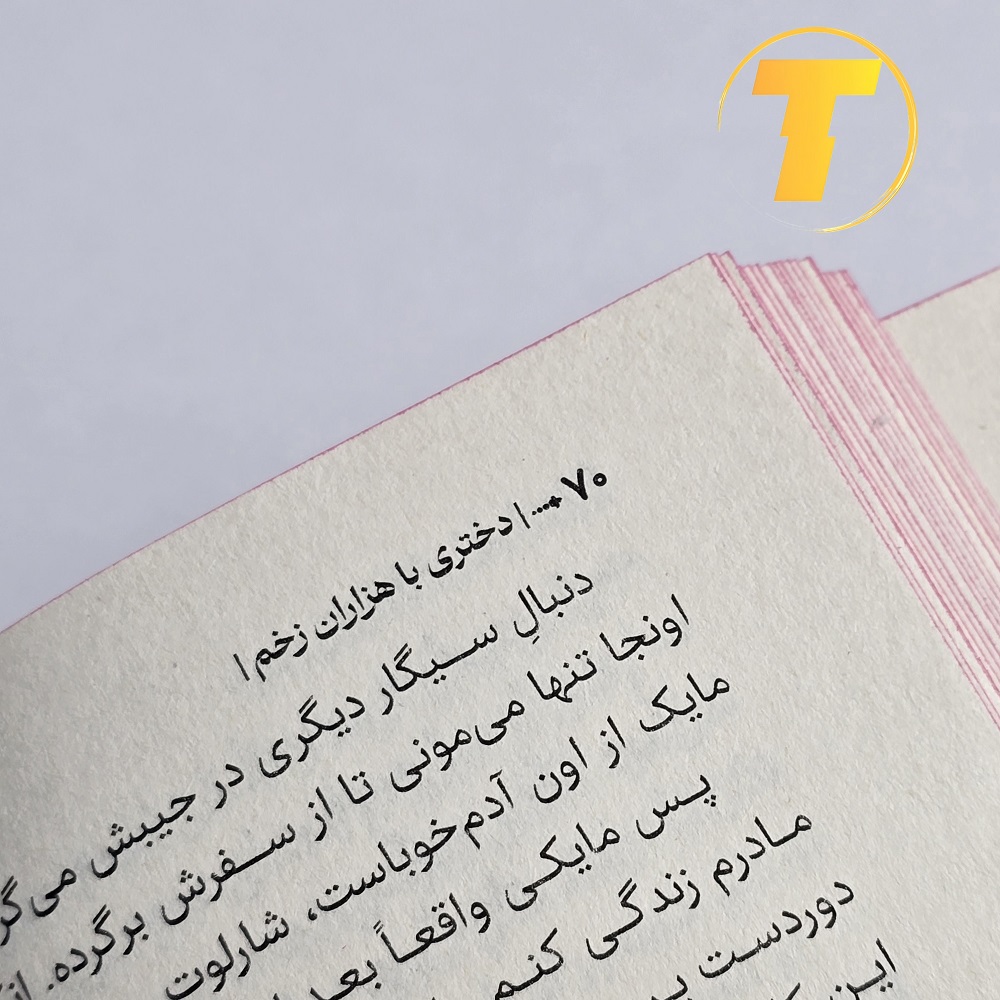 T
۷۰ ... | دختری با هزاران زخم |
دنبالِ سیگار دیگری در جیبش می‌گر
اونجا تنها می‌مونی تا از سفرش برگرده.
مایک از اون آدم‌خوباست، شارلوت
پس مایکی واقعاً بعد
مادرم زندگی کنم
دوردست
این